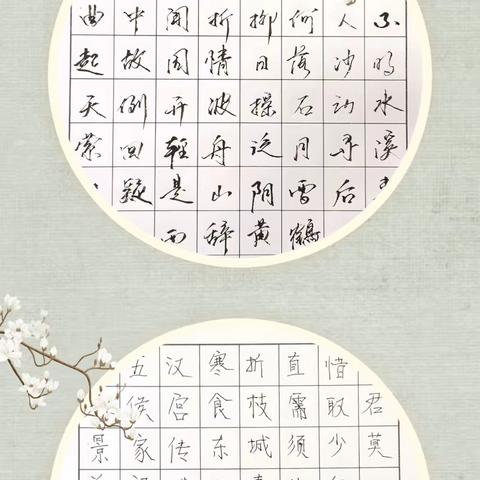 曲中闻折柳何人不
起故园情日落沙明
天倒开波摇石动水
萦回轻舟泛月寻溪
疑是山阴雪后来
西辞黄鹤
君莫
惜取少
直需须
折枝城
寒食东
汉宫传
五侯家
景